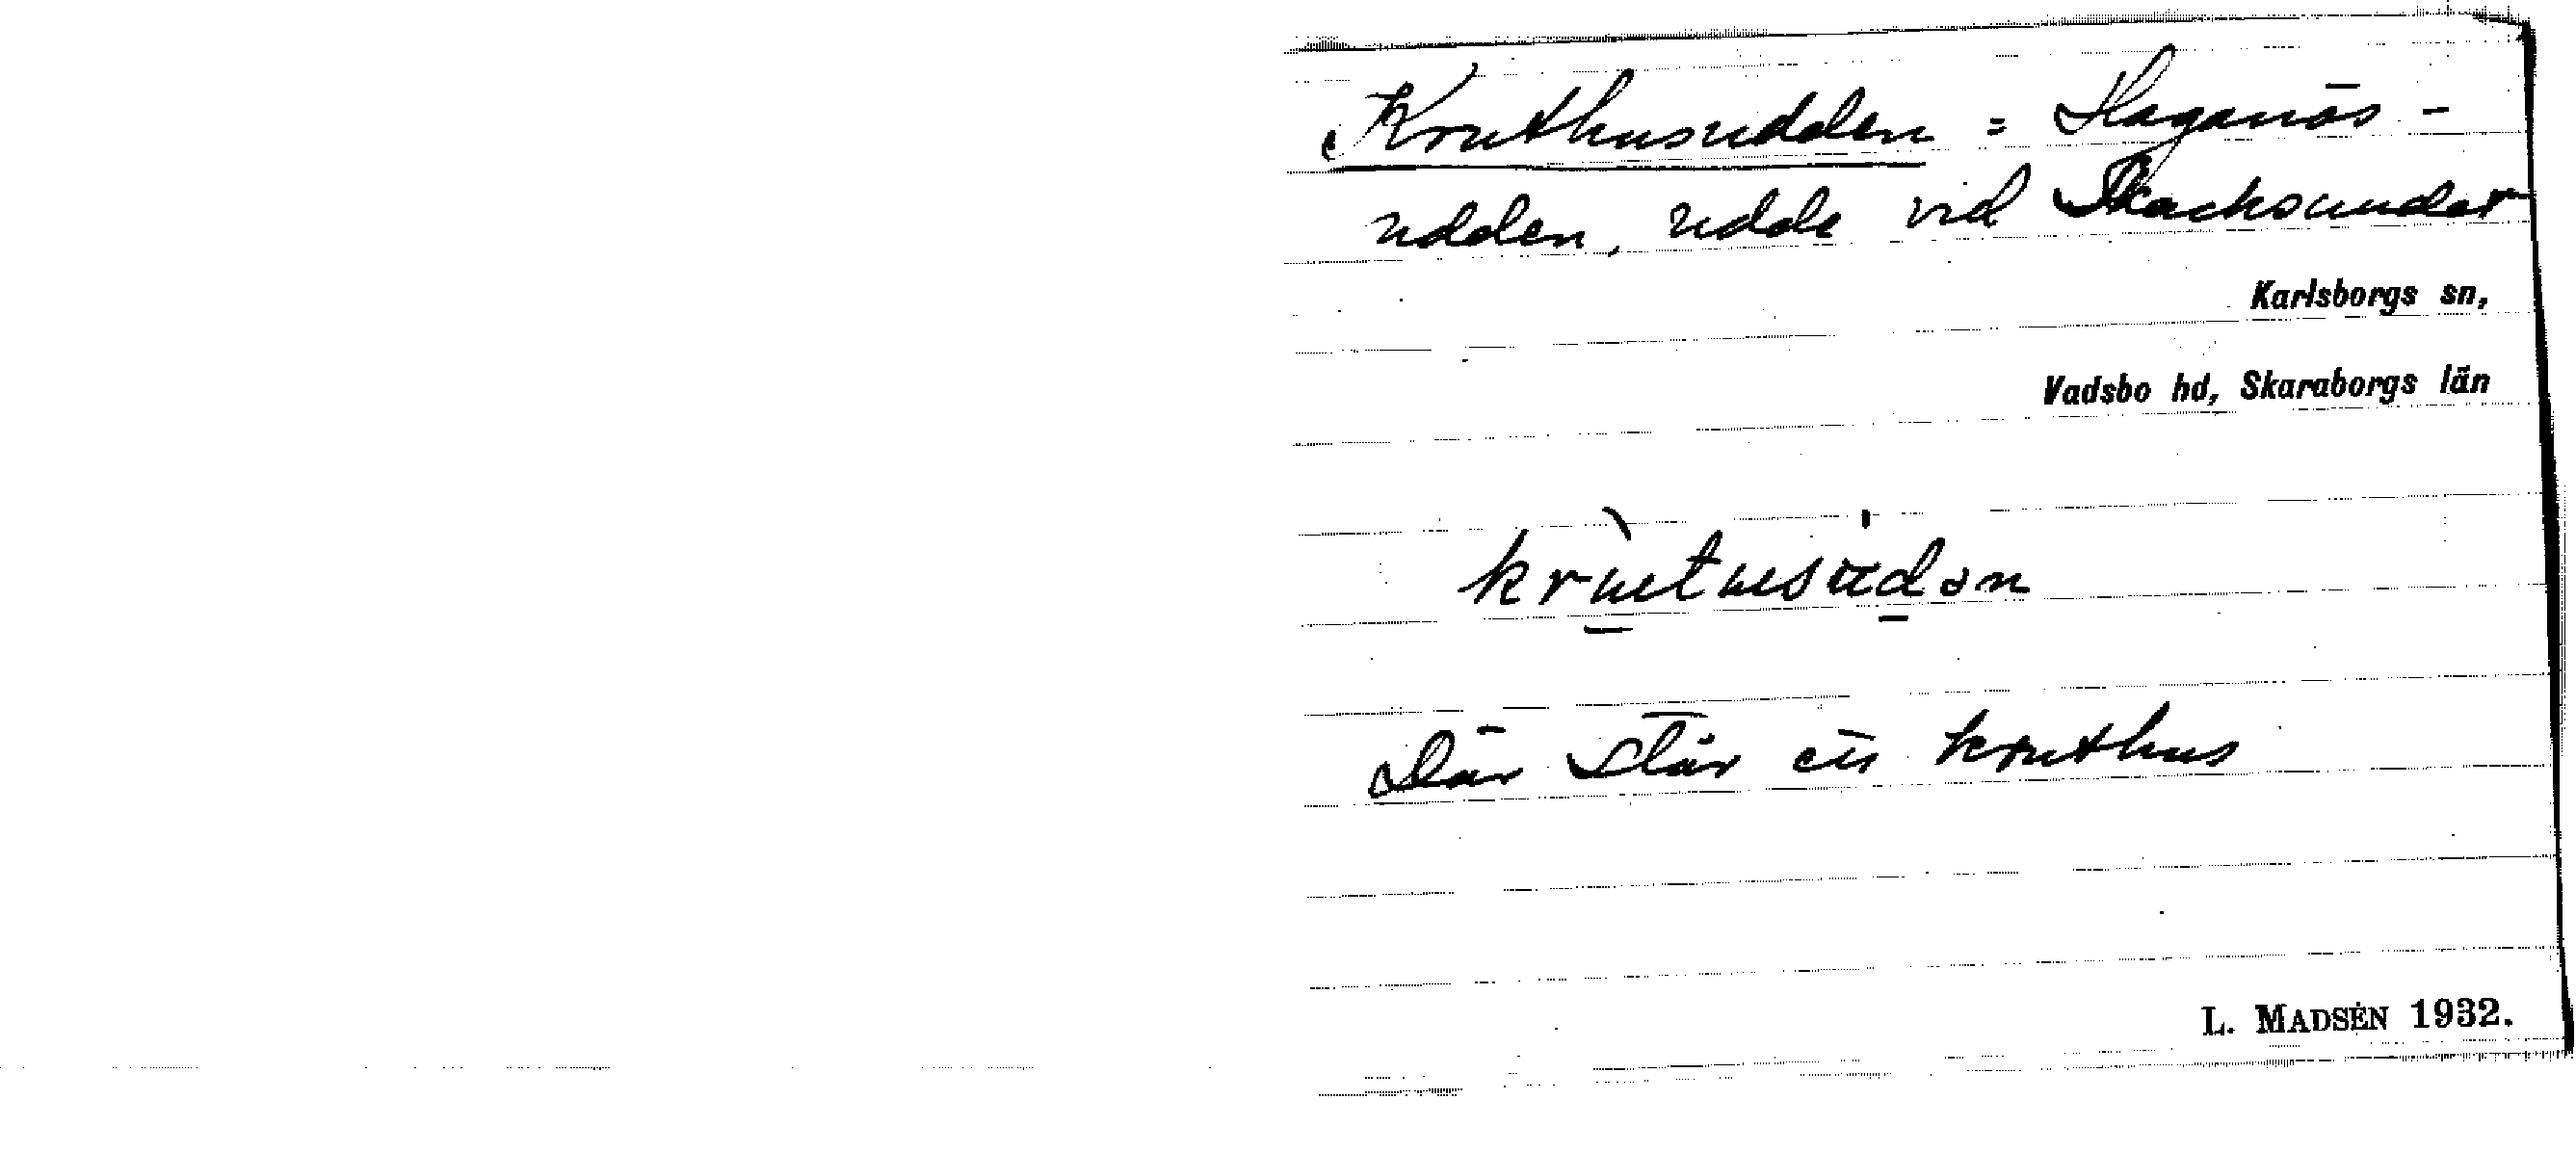 Kruthusudden = Haganäs-
udden, udde vid
Karlsborgs sn,
Vadsbo hd, Skaraborgs län
Där står ett kruthus
L. MADSÉN 1932.